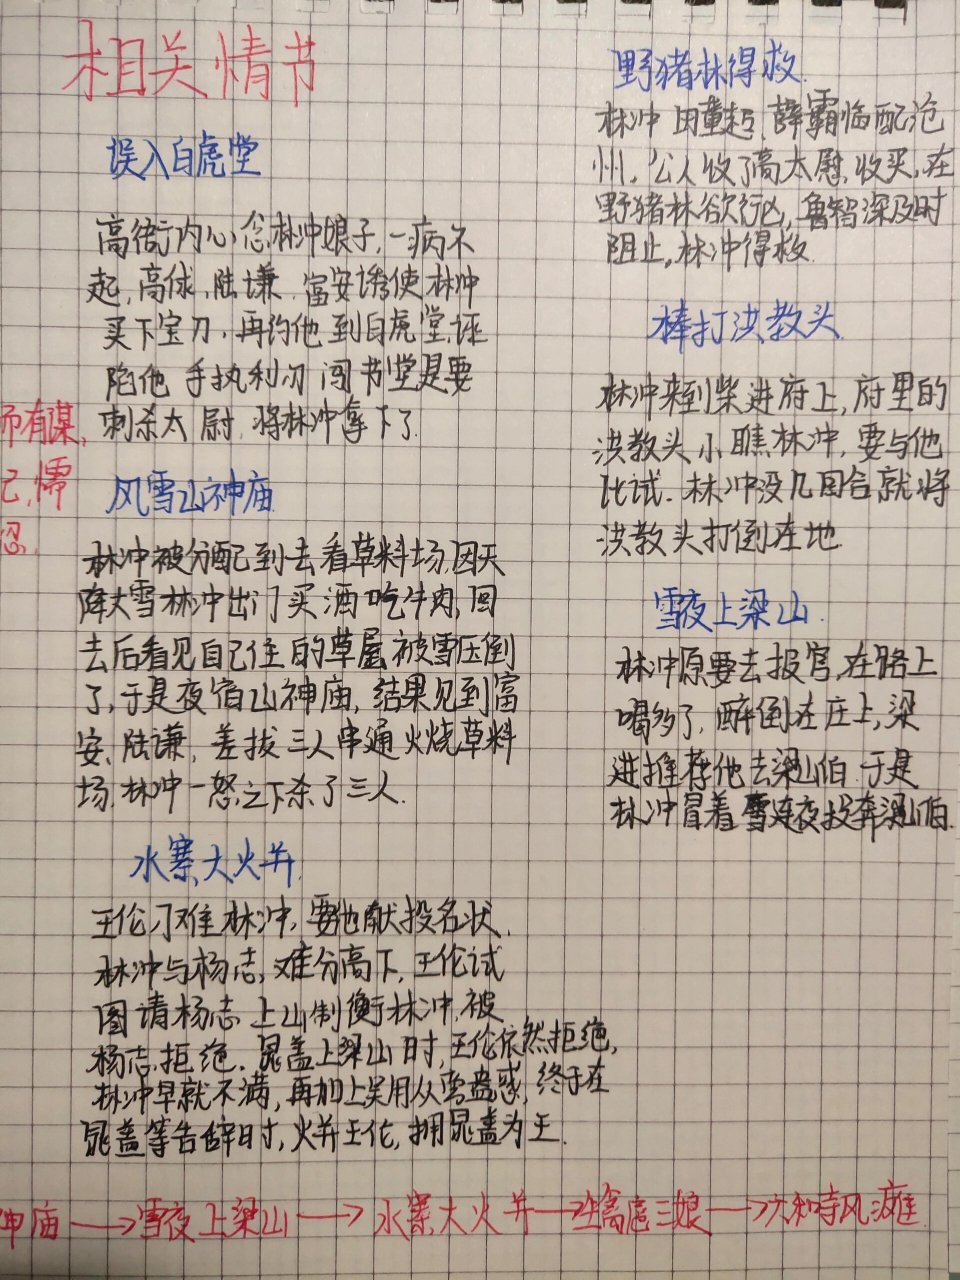 相关情节
误入白虎堂
高衙内心念林冲娘子,一病不
起,高俅,陆谦.富安诱使林冲
买下宝刀,再约他到白虎堂.诬
陷他手执利刃闯节堂是要
刺杀太尉.将林冲拿下了.
而有谋,
己,懦
忍.
风雪山神庙
林冲被分配到去看草料场.因天
降大雪林冲出门买酒吃牛肉,回
去后看见自己住的草屋被雪压倒
了,于是夜宿山神庙,结果见到富
安、陆谦,差拔三人串通火烧草料
场.林冲一怒之下杀了三人.
水寨大火并
王伦刁难林冲,要他献投名状.
林冲与杨志,难分高下,王伦试
图请杨志上山制衡林冲,被
杨志拒绝.晁盖上梁山时,王伦依然拒绝,
林冲早就不满,再加上吴用从旁蛊惑,终于在
晁盖等告辞时,火并王伦,拥晁盖为王.
野猪林得救.
林冲由董超、薛霸临配沧
州,公人收了高太尉,收买,在
野猪林欲行凶,鲁智深及时
阻止,林冲得救.
棒打洪教头
林冲来到柴进府上,府里的
洪教头小瞧林冲,要与他
比试.林冲没几回合就将
洪教头打倒在地.
雪夜上梁山.
林冲原要去报官,在路上
喝多了,醉倒在庄上,梁
进推荐他去梁山伯.于是
林冲冒着雪连夜投奔梁山伯.
神庙→雪夜上梁山→水寨大火并→生擒扈三娘→六和寺风瘫